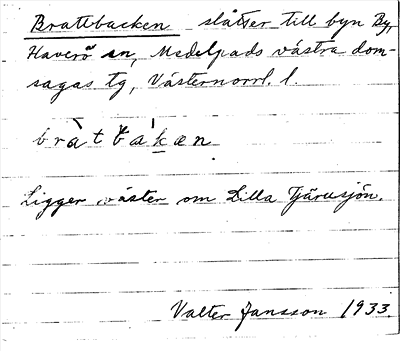 Brattbacken slåtter till byn By,
Haverö sn, Medelpads västra dom-
sagas tg, Västernorrl. l.
bràtba̍kæn
Ligger väster om Lilla Tjärusjön.
Valter Jansson 1933.